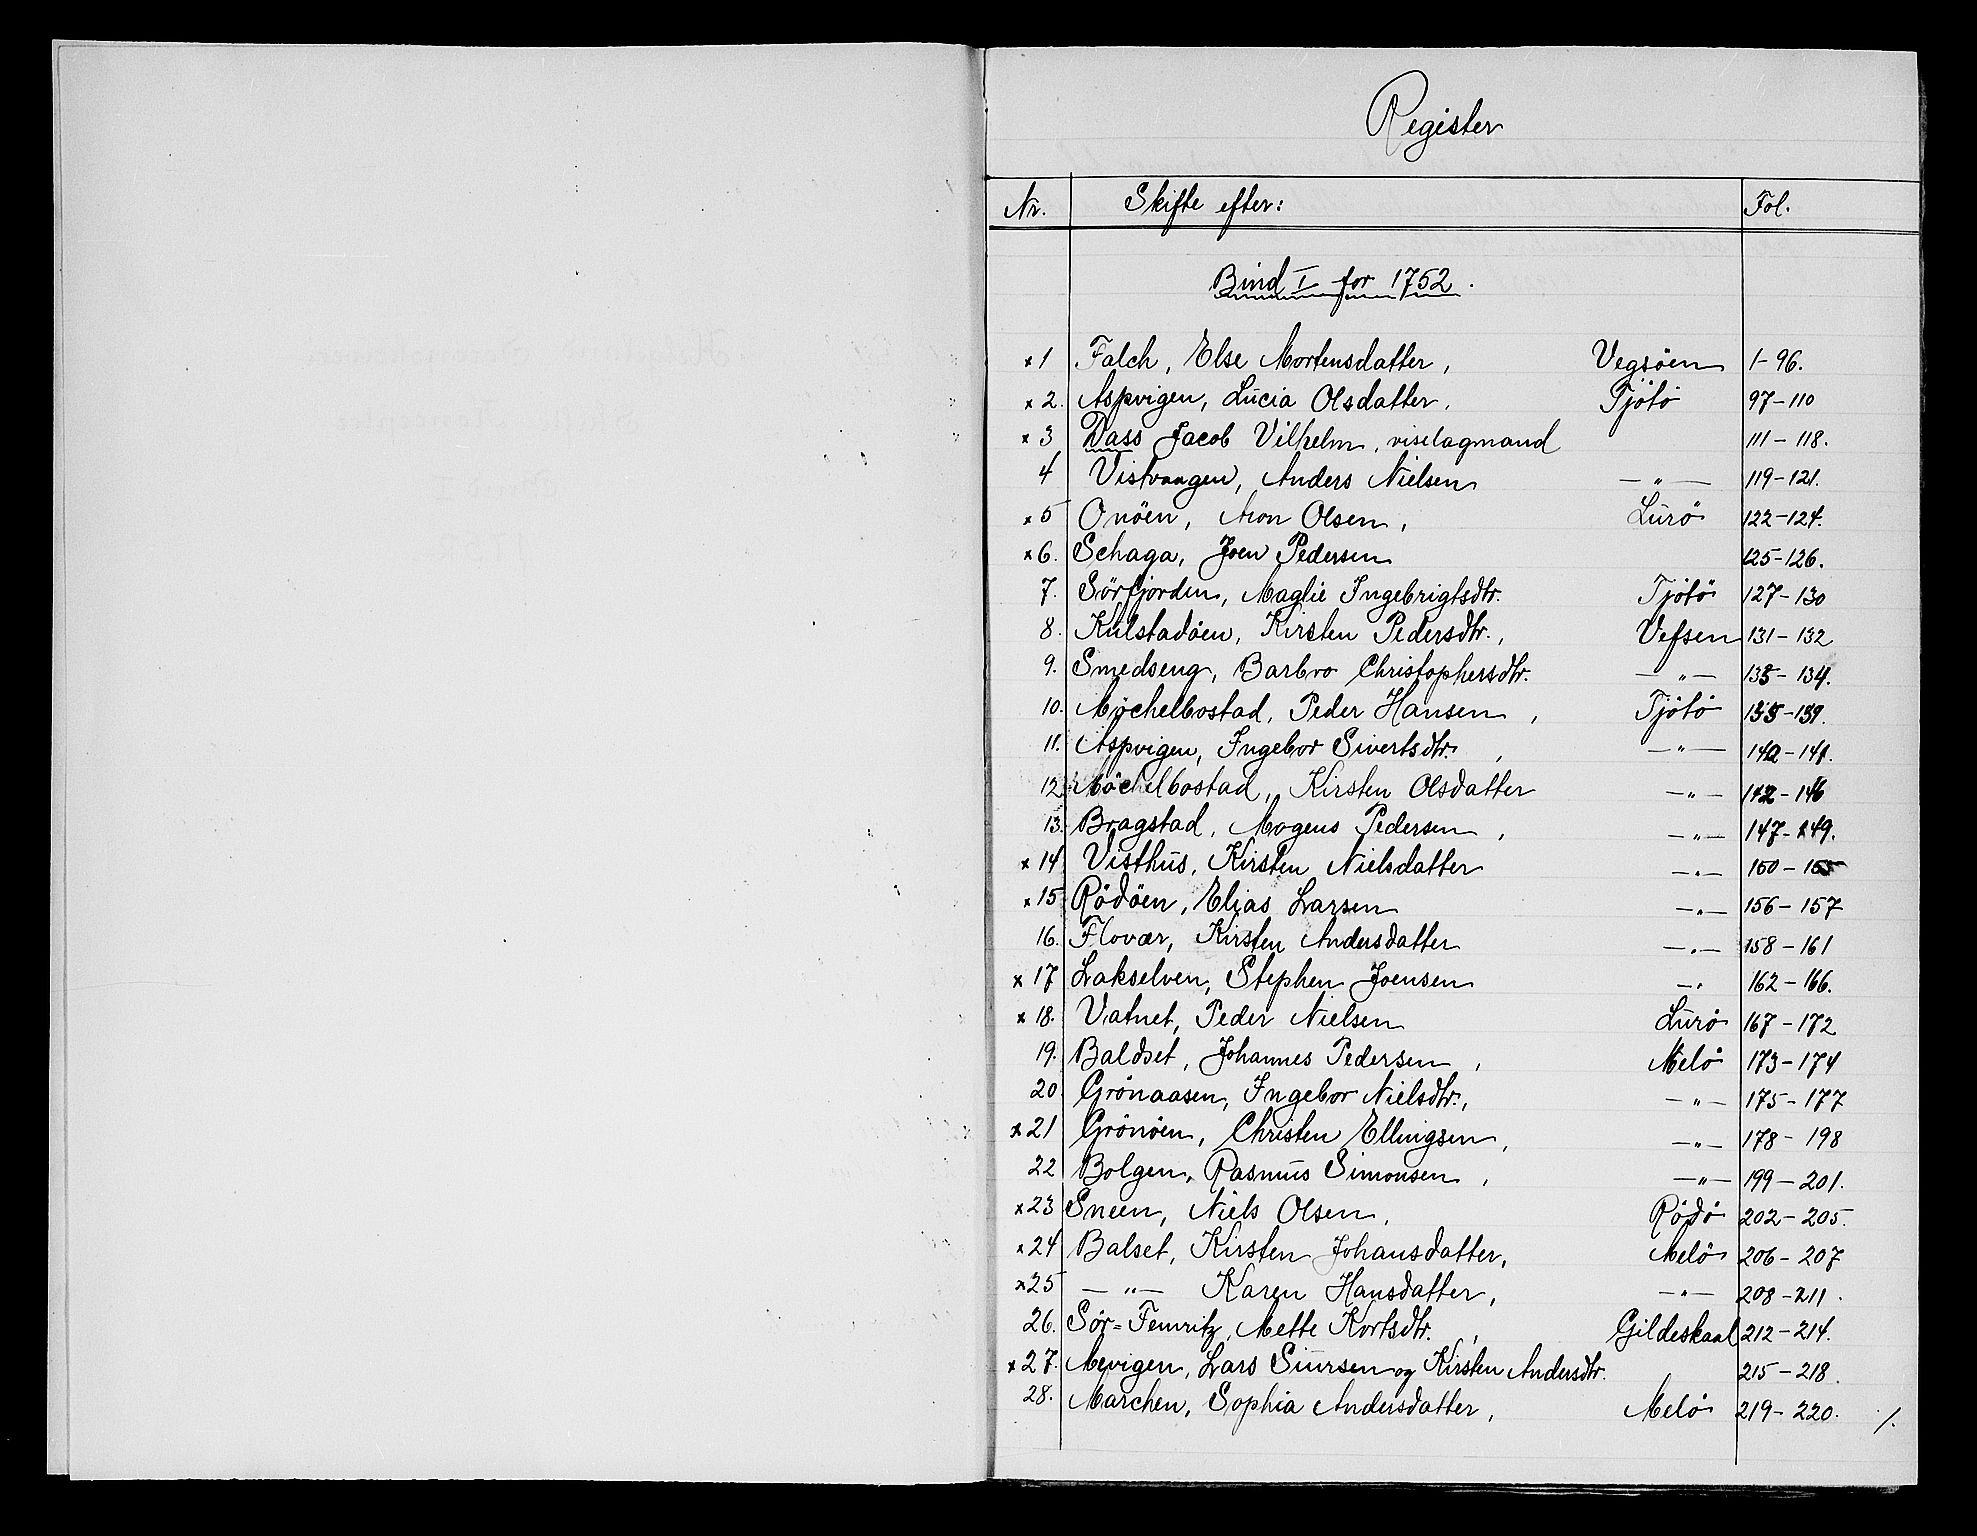 Register
Nr. Skifte efter: Fol.
Bind I for 1752.
x 1 Falch, Else Mortensdatter, Vegsöen 1-96.
x 2. Aspvigen, Lucia Olsdatter, Tjötö 97-110
x 3 Dass Jacob Vilhelm, viselagmand 111-118.
4 Vistvaagen, Anders Nielsen —„— 119-121.
x 5 Onöen, Aron Olsen, Lurö 122-124.
x 6. Schaga, Joen Pedersen 125-126.
7. Sörfjorden, Maglie Ingebrigtsdtr. Tjötö 127-130
8. Kulstadöen, Kirsten Pedersdtr., Vefsen 131-132
9. Smedseng, Barbro Christophersdtr. —„— 133-134.
10. Möchelbostad, Peder Hansen, Tjötö 135-139.
11. Aspvigen, Ingebor Sivertsdtr., —„— 140-141.
12. Möchelbostad, Kirsten Olsdatter —„— 142-146
13. Bragstad, Mogens Pedersen, —„— 147-149.
x 14 Visthus, Kirsten Nielsdatter —„— 150-155
x 15 Rödöen, Elias Larsen —„— 156-157
16. Flovær, Kirsten Andersdatter —„— 158-161
x 17 Lakselven, Stephen Joensen —„ 162-166.
x 18. Vatnet, Peder Nielsen Lurö 167-172
19. Baldset, Johannes Pedersen, Melö 173-174
20 Grönaasen, Ingebor Nielsdtr., —„— 175-177
x 21 Grönöen, Christen Ellingsen, —„— 178-198
22 Bolgen, Rasmus Simonsen, —„— 199-201.
x 23 Sneen, Niels Olsen, Rödö 202-205.
x 24 Balset, Kirsten Johansdatter, Melö 206-207
x 25 —„— Karen Hansdatter, —„— 208-211.
26. Sör=Femritz, Mette Kortsdtr., Gildeskaal 212-214.
x 27. Mevigen, Lars Siursen og Kirsten Andersdtr. 215-218.
28. Marchen, Sophia Andersdatter, Melö 219-220. /.